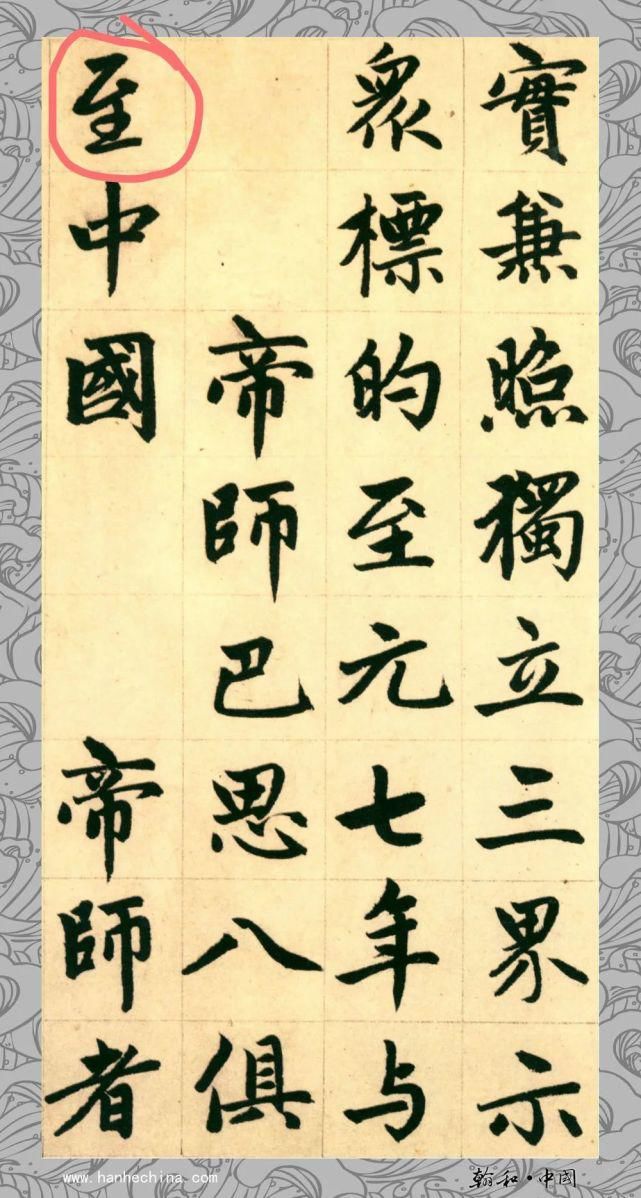 實兼照獨立三界示
衆標的至元七年与
帝師巴思八俱
至中國 帝師者
www.hanhechina.com
翰和·中国